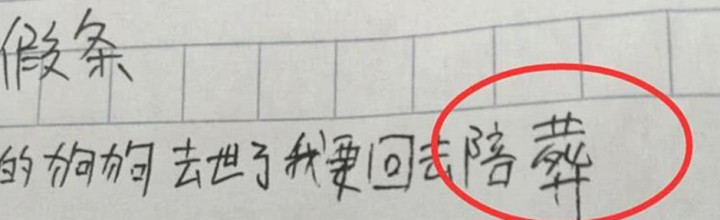 假条
的狗狗去世了我要回去陪葬